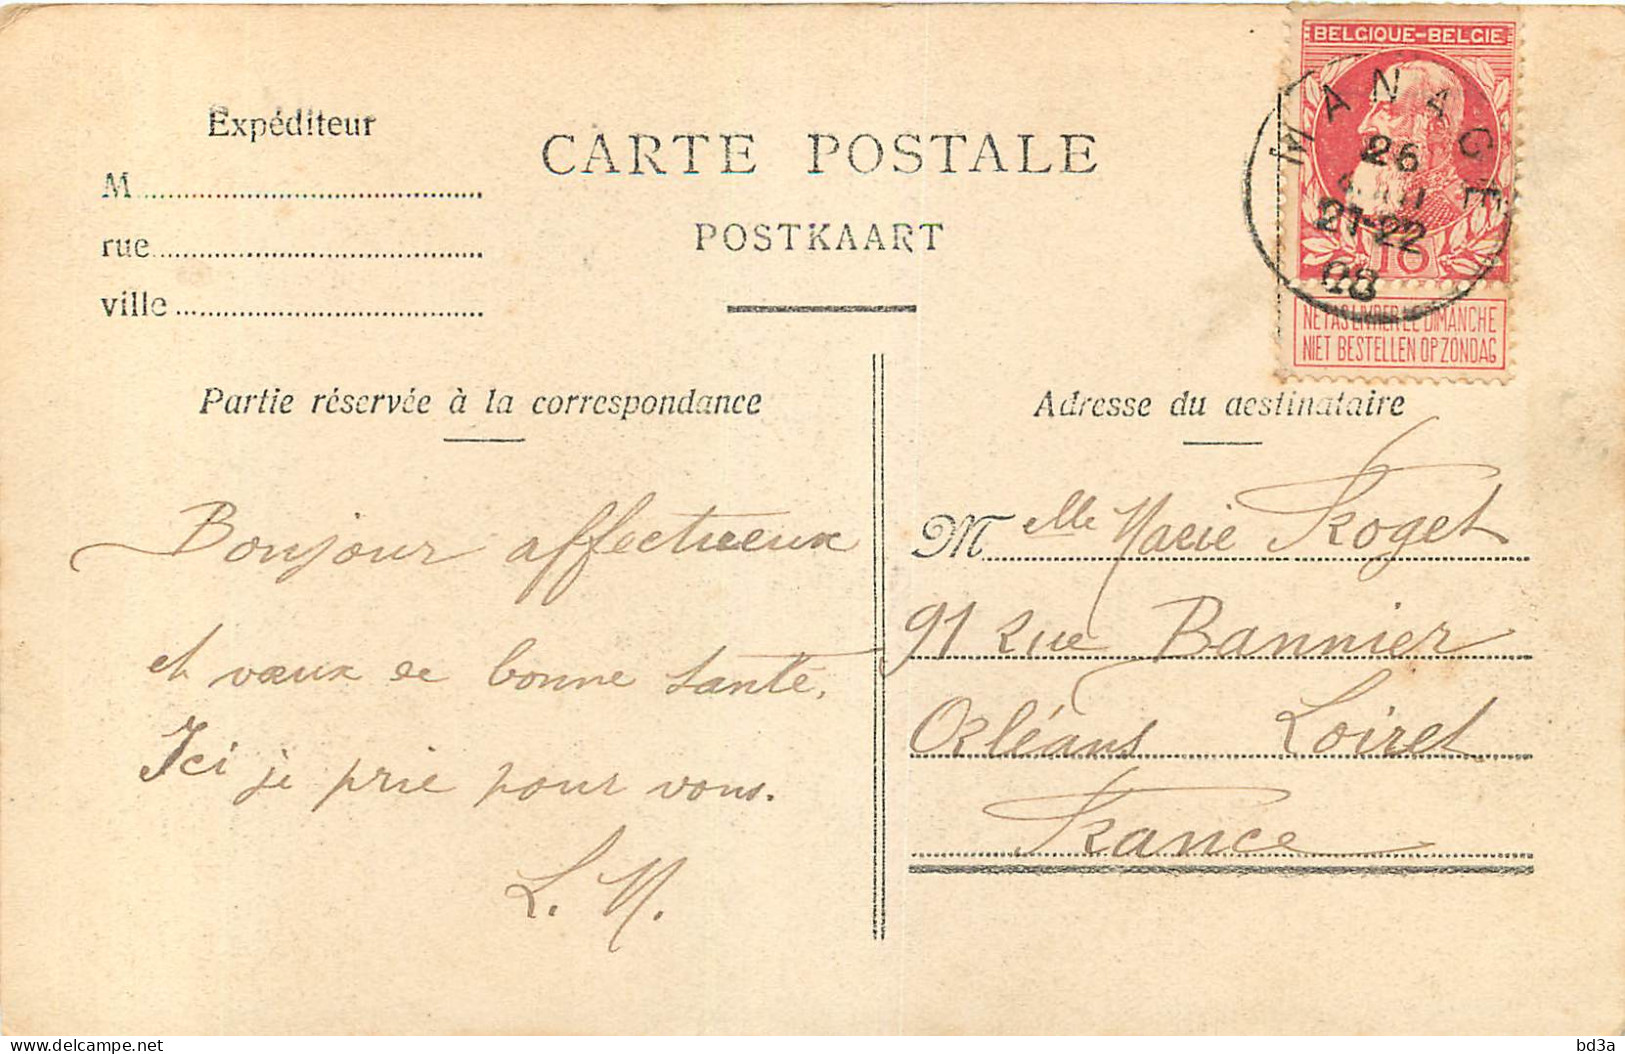 BELGIQUE-BELGIE
MANAGE
26
21-22
08
10
NE PAS LIVRER LE DIMANCHE
NIET BESTELLEN OP ZONDAG
Expéditeur
M
rue
ville
CARTE POSTALE
POSTKAART
Partie réservée à la correspondance
Adresse du destinataire
Bonjour affectueux
et vœux de bonne santé.
Ici je prie pour vous.
L. M.
Melle Marie Roget
91 Rue Bannier
Orléans Loiret
France
delcampe.net
bd3a